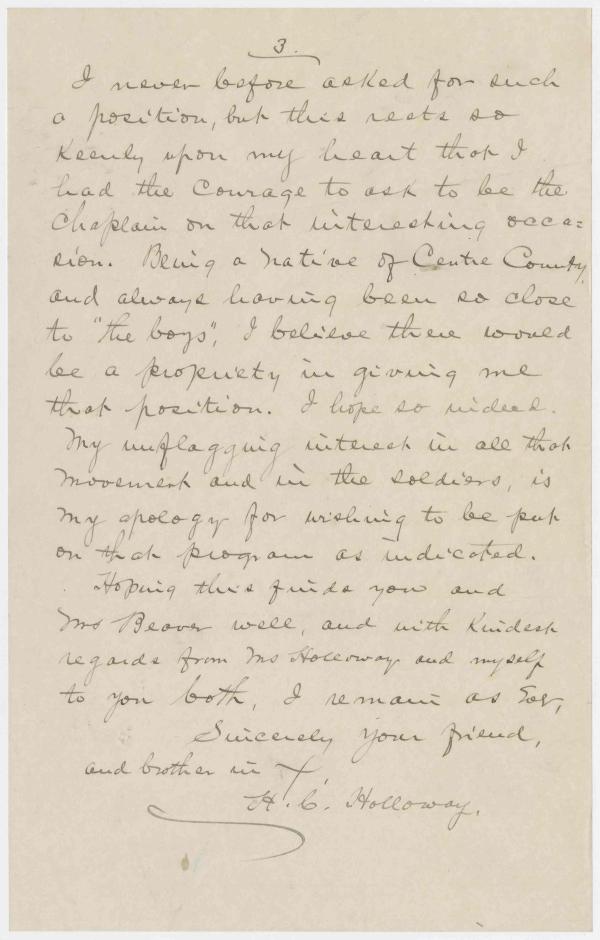 3.
I never before asked for such
a position, but this rests so
keenly upon my heart that I
had the courage to ask to be the
Chaplain on that interesting occa=
sion. Being a native of Centre County,
and always having been so close
to "the boys", I believe there would
be a propriety in giving me
that position. I hope so indeed.
My unflagging interest in all that
movement and in the soldiers, is
my apology for wishing to be put
on that program as indicated.
Hoping this finds you and
Mrs Beaver well, and with kindest
regards from Mrs Holloway and myself
to you both, I remain as Ever,
Sincerely your friend,
and brother in X,
H. C. Holloway.